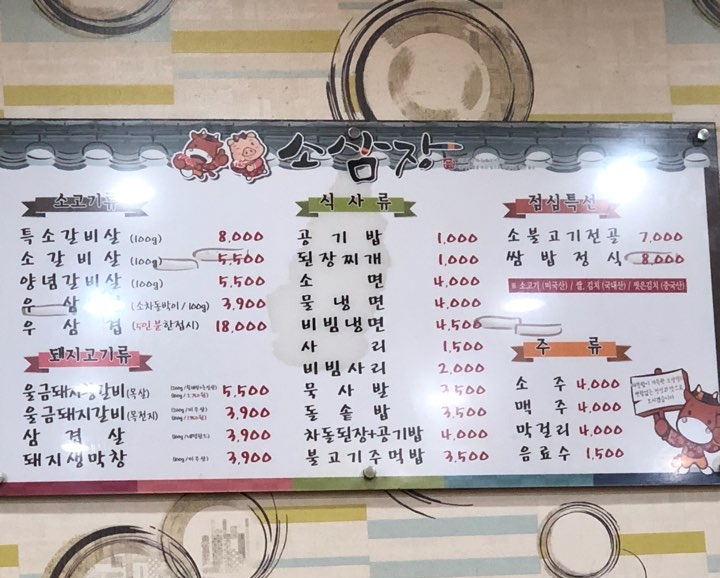 소삼장
소고기류
특소갈비살 (100g) 8,000
소갈비살 (100g) 5,500
양념갈비살 (100g) 5,500
우삼겹 (소차돌박이 / 100g) 3,900
우삼겹 (5인분한접시) 18,000
돼지고기류
울금돼지생갈비(목살) 5,500
울금돼지갈비(목전지) 3,900
삼겹살 3,900
돼지생막창 3,900
식사류
공기밥 1,000
된장찌개 1,000
소면 4,000
물냉면 4,000
비빔냉면 4,500
사리 1,500
비빔사리 2,000
묵사발 3,500
돌솥밥 3,500
차돌된장+공기밥 4,000
불고기주먹밥 3,500
점심특선
소불고기전골 7,000
쌈밥정식 8,000
※ 소고기 (미국산) / 쌀, 김치 (국내산) / 씻은김치 (중국산)
주류
소주 4,000
맥주 4,000
막걸리 4,000
음료수 1,500